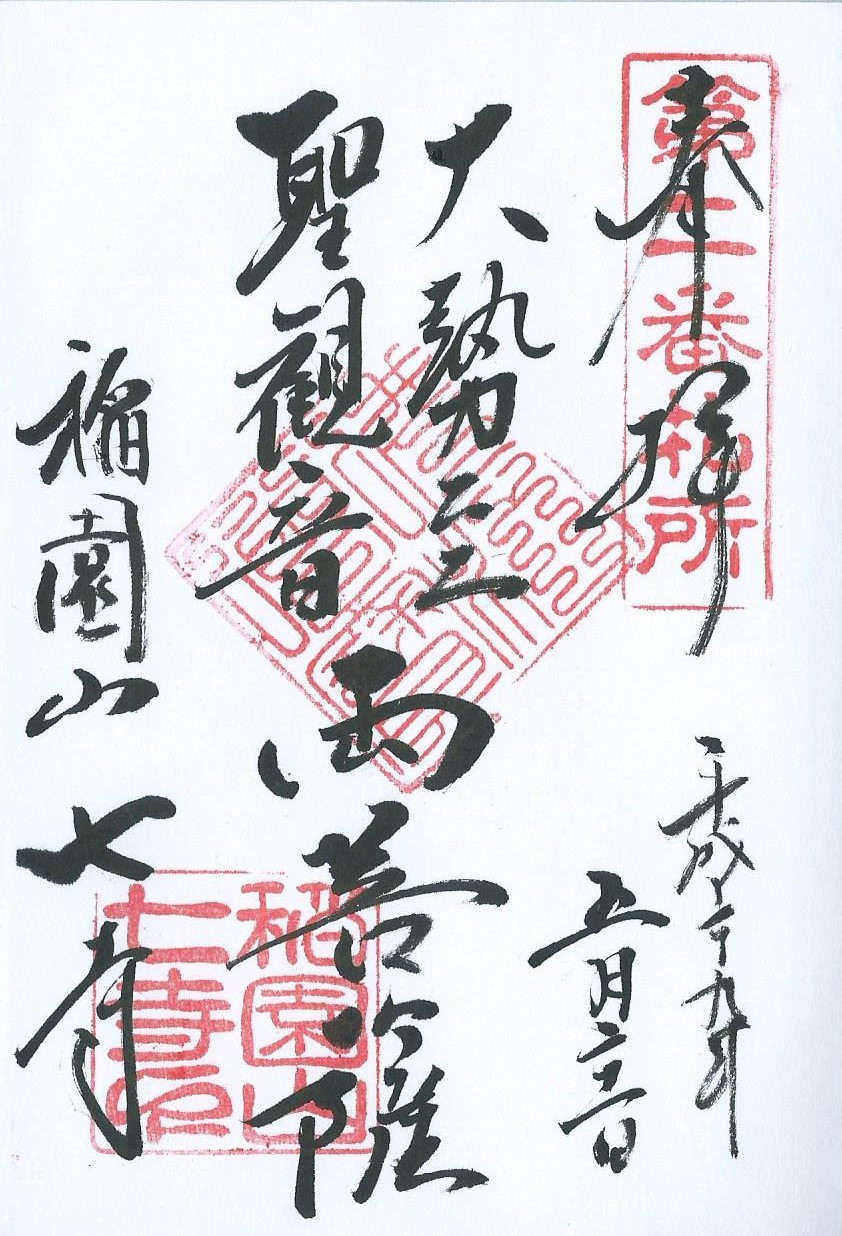 奉拝
第二番札所
平成廿九年
五月
大勢至
聖観音
両菩薩
稲園山 七寺
稲園山
七寺印